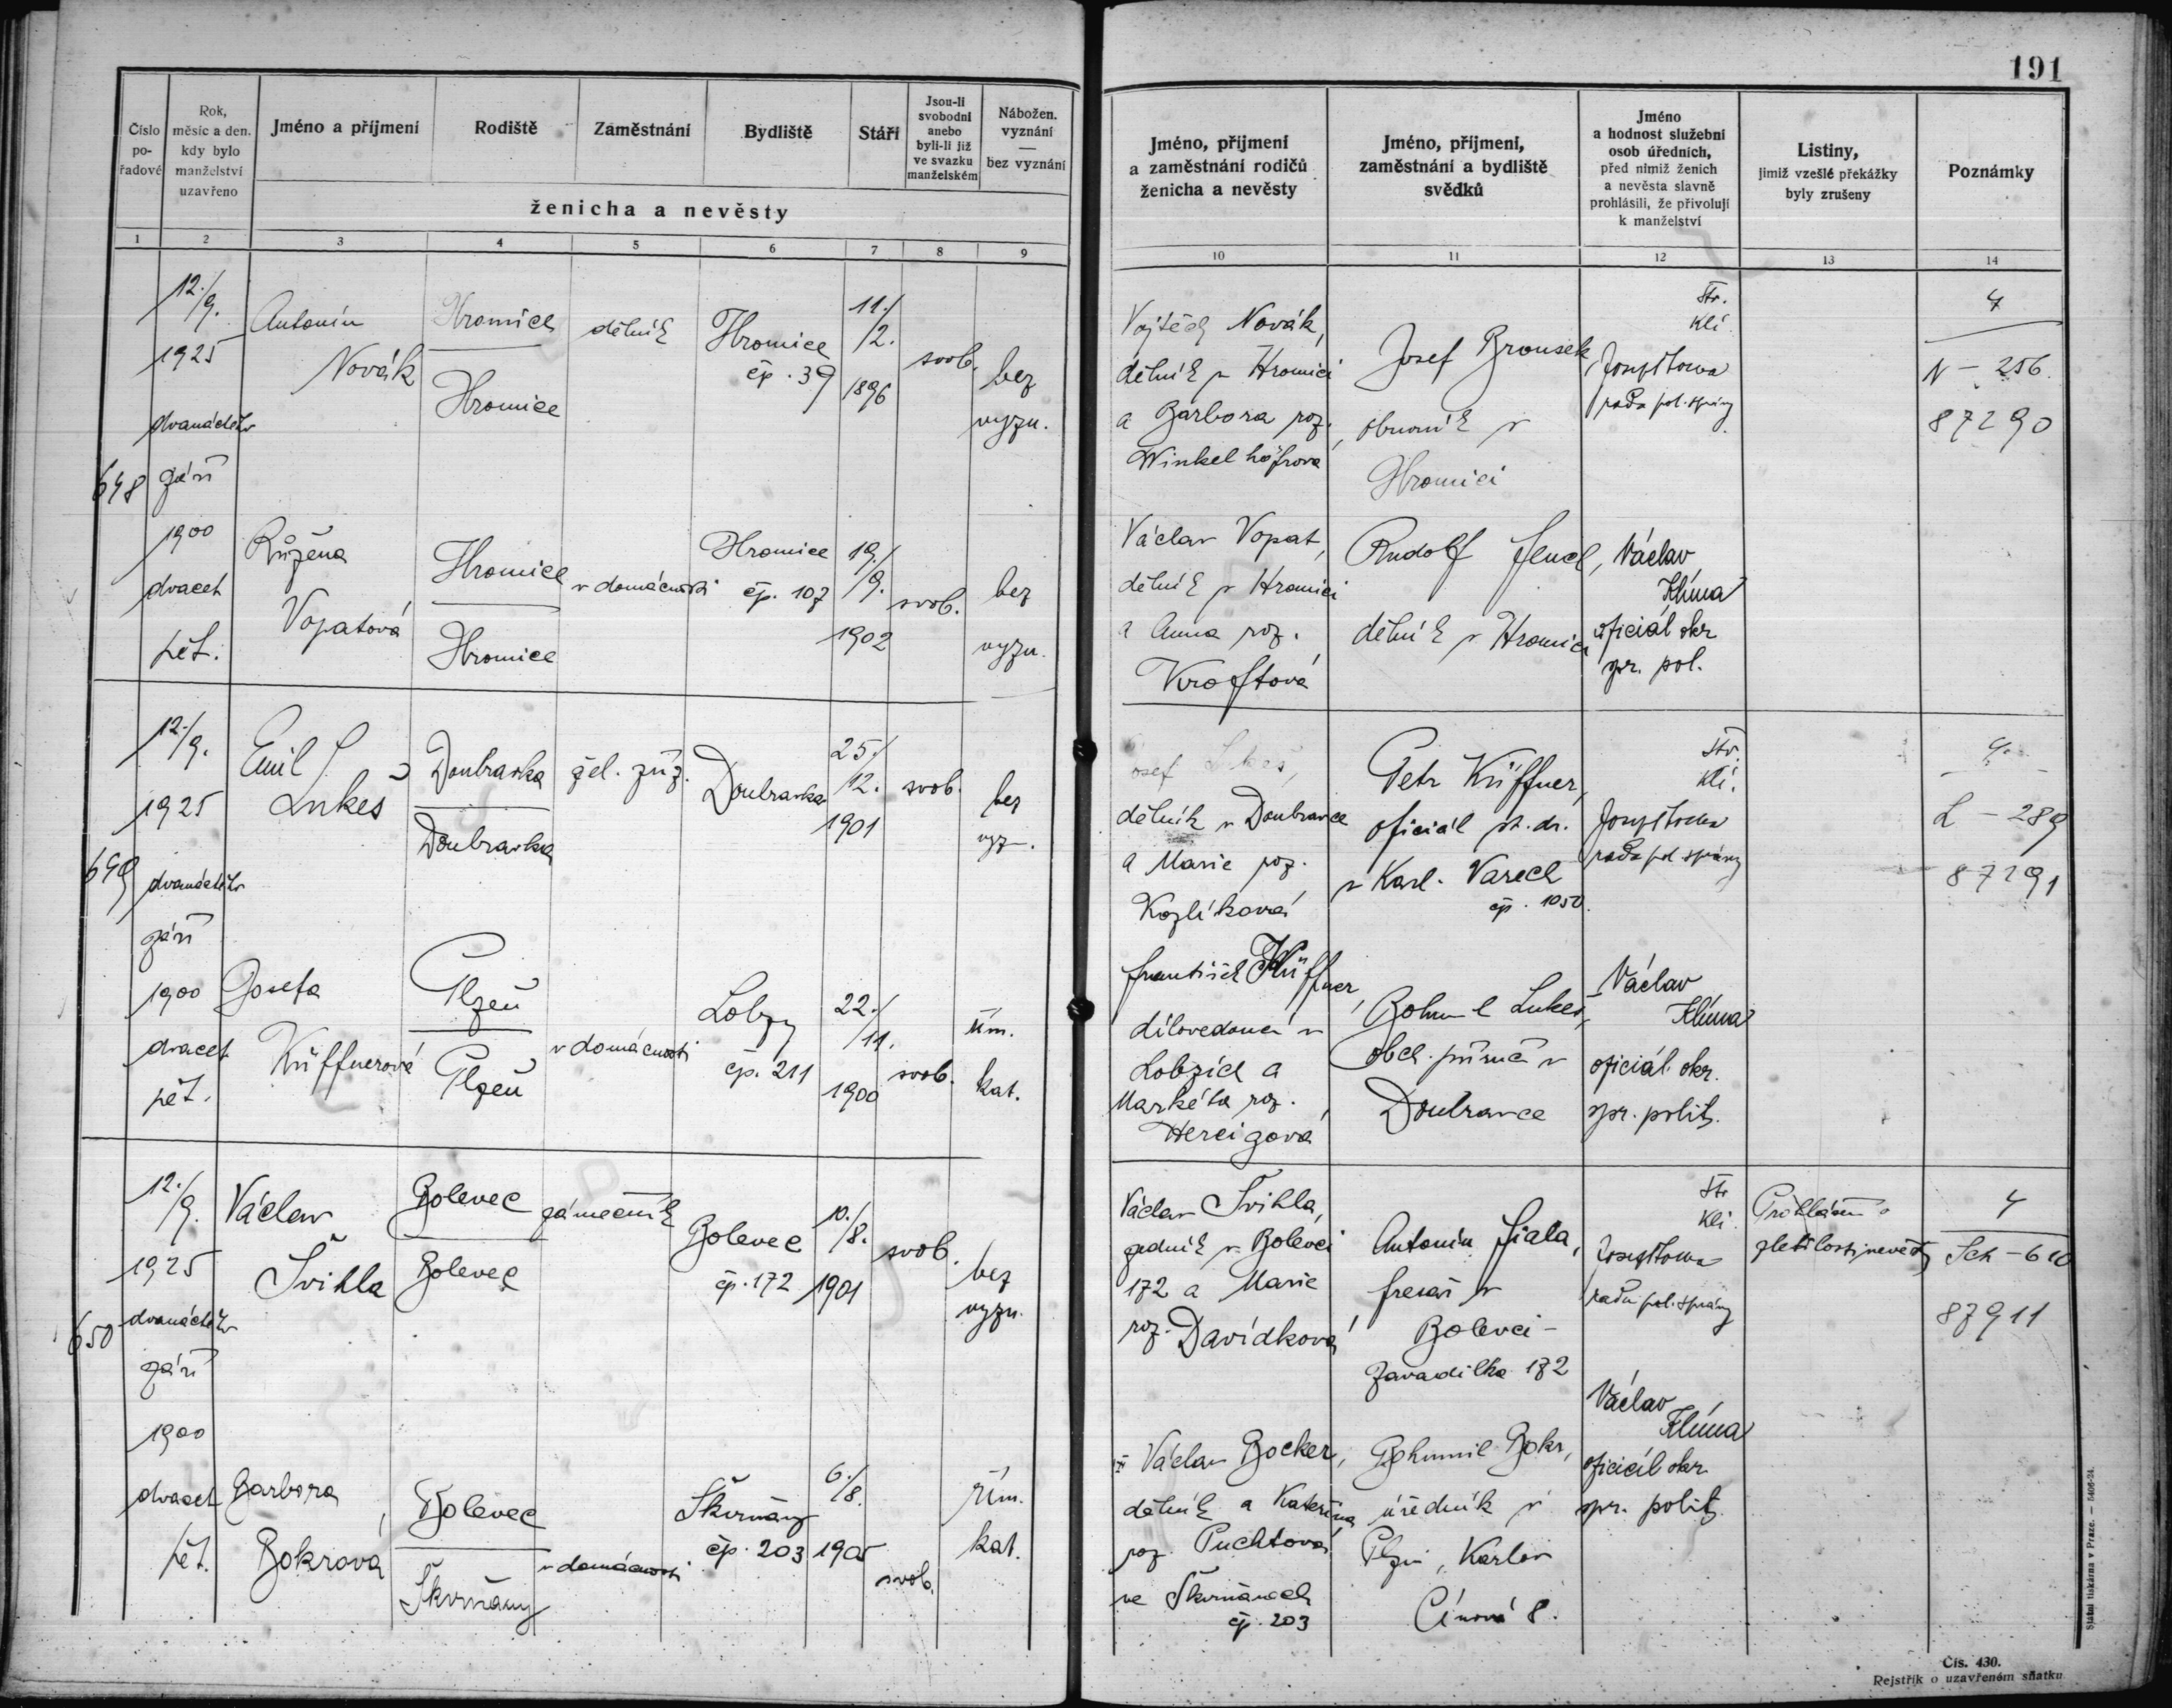 191
Číslo pořadové
Rok, měsíc a den, kdy bylo manželství uzavřeno
Jméno a příjmení
Rodiště
Zaměstnání
Bydliště
Stáří
Jsou-li svobodni anebo byli-li již ve svazku manželském
Nábožen. vyznání — bez vyznání
ženicha a nevěsty
Jméno, příjmení a zaměstnání rodičů ženicha a nevěsty
Jméno, příjmení, zaměstnání a bydliště svědků
Jméno a hodnost služební osob úředních, před nimiž ženich a nevěsta slavně prohlásili, že přivolují k manželství
Listiny, jimiž vzešlé překážky byly zrušeny
Poznámky
1 2 3 4 5 6 7 8 9 10 11 12 13 14
648
12./9.
1925
dvanáctého
září
1900
dvacet
pět.
Antonín
Novák
Hromice
Hromice
dělník
Hromice
čp. 39
11./
2.
1896
svob.
bez
vyzn.
Vojtěch Novák,
dělník v Hromici
a Barbora roz.
Winkelhöfrová
Josef Brousek,
obuvník v
Hromici
rada pol. správy
4
N - 256
87290
Růžena
Vopatová
Hromice
Hromice
v domácnosti
Hromice
čp. 107
19./
9.
1902
svob.
bez
vyzn.
Václav Vopat,
dělník v Hromici
a Anna roz.
Kroftová
Rudolf Jencl,
dělník v Hromici
Václav
Klíma
oficiál okr.
spr. pol.
649
12./9.
1925
dvanáctého
září
1900
dvacet
pět.
Emil
Lukeš
Doubravka
Doubravka
žel. zříz.
Doubravka
25./
12.
1901
svob.
bez
vyz.
Josef Lukeš,
dělník v Doubravce
a Marie roz.
Kozlíková
Petr Küffner,
oficiál st. dr.
v Karl. Varech
čp. 1050.
rada pol. správy
L - 289
87291
Josefa
Küffnerová
Plzeň
Plzeň
v domácnosti
Lobzy
čp. 211
22./
11.
1900
svob.
řím.
kat.
František Küffner,
dílovedoucí v
Lobzích a
Markéta roz.
Hercigová
Bohumil Lukeš,
obch. příručí v
Doubravce
Václav
Klíma
oficiál okr.
spr. polit.
650
12./9.
1925
dvanáctého
září
1900
dvacet
pět.
Václav
Švihla
Bolevec
Bolevec
zámečník
Bolevec
čp. 172
10./
8.
1901
svob.
bez
vyzn.
Václav Švihla,
zedník v Bolevci
172 a Marie
roz. Davídková
Antonín Fiala,
fresař v
Bolevci -
Zavadilka 172
rada pol. správy
Prohlášení o
zletilosti nevěsty
4
Sch - 610
87911
Barbora
Bokrová
Bolevec
Škvrňany
v domácnosti
Škvrňany
čp. 203
6./
8.
1905
svob.
řím.
kat.
Václav Bocker,
dělník a Kateřina
roz. Puchtová
ve Škvrňanech
čp. 203
Bohumil Bokr,
úředník v
Plzni, Karlov
Cínová 8.
Václav
Klíma
oficiál okr.
spr. polit.
Státní tiskárna v Praze. — 5406-24.
Čís. 430.
Rejstřík o uzavřeném sňatku.